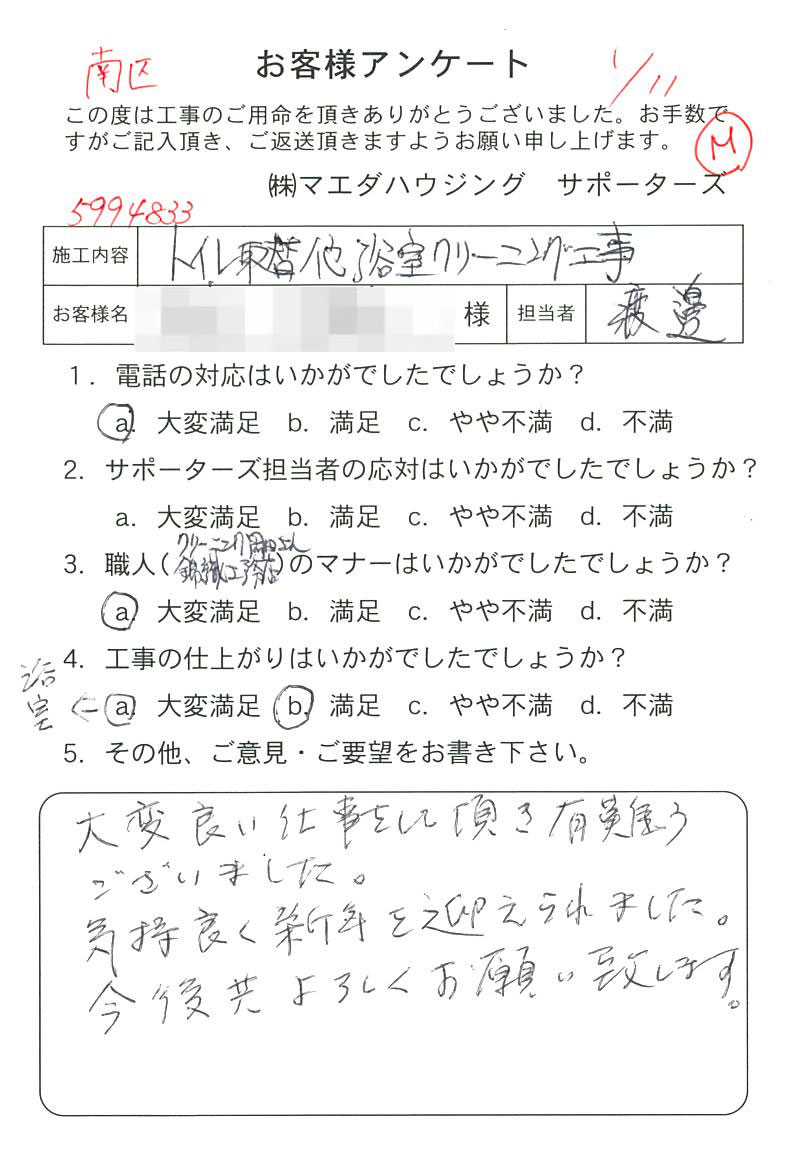 南区
お客様アンケート
1/11
この度は工事のご用命を頂きありがとうございました。お手数で
すがご記入頂き、ご返送頂きますようお願い申し上げます。
M
㈱マエダハウジング　サポーターズ
5994833
施工内容 トイレ取替他浴室クリーニング工事
お客様名 様 担当者 渡邊
1. 電話の対応はいかがでしたでしょうか？
a. 大変満足 b. 満足 c. やや不満 d. 不満
2. サポーターズ担当者の応対はいかがでしたでしょうか？
a. 大変満足 b. 満足 c. やや不満 d. 不満
クリーニング岡田さん
3. 職人(錦織工務店)のマナーはいかがでしたでしょうか？
a. 大変満足 b. 満足 c. やや不満 d. 不満
4. 工事の仕上がりはいかがでしたでしょうか？
浴室 ← a. 大変満足 b. 満足 c. やや不満 d. 不満
5. その他、ご意見・ご要望をお書き下さい。
大変良い仕事をして頂き有難う
ございました。
気持良く新年を迎えられました。
今後共よろしくお願い致します。